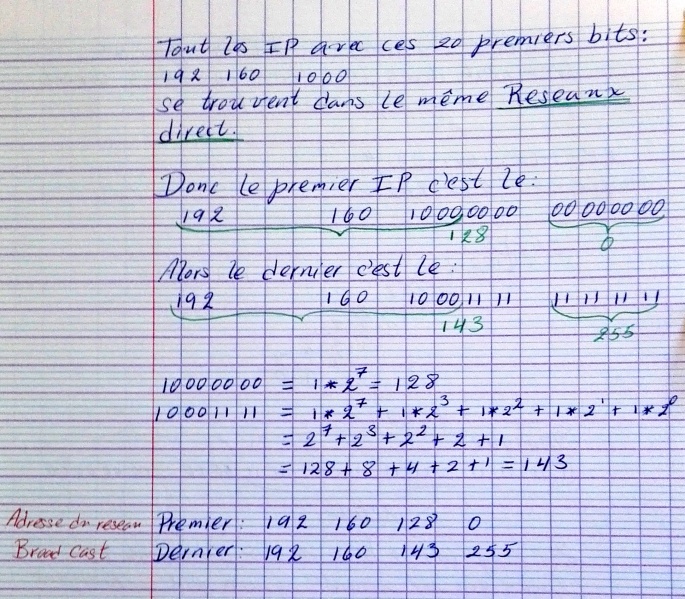 Tout les IP avec ces 20 premiers bits:
192 160 1000
se trouvent dans le même Reseaux
direct.
Donc le premier IP c'est le:
192 160 10000000 00000000
128 0
Alors le dernier c'est le:
192 160 10001111 11111111
143 255
10000000 = 1*2^7 = 128
10001111 = 1*2^7 + 1*2^3 + 1*2^2 + 1*2^1 + 1*2^0
= 2^7+2^3+2^2+2+1
= 128+8+4+2+1 = 143
Adresse du reseau Premier: 192 160 128 0
Broad cast Dernier: 192 160 143 255